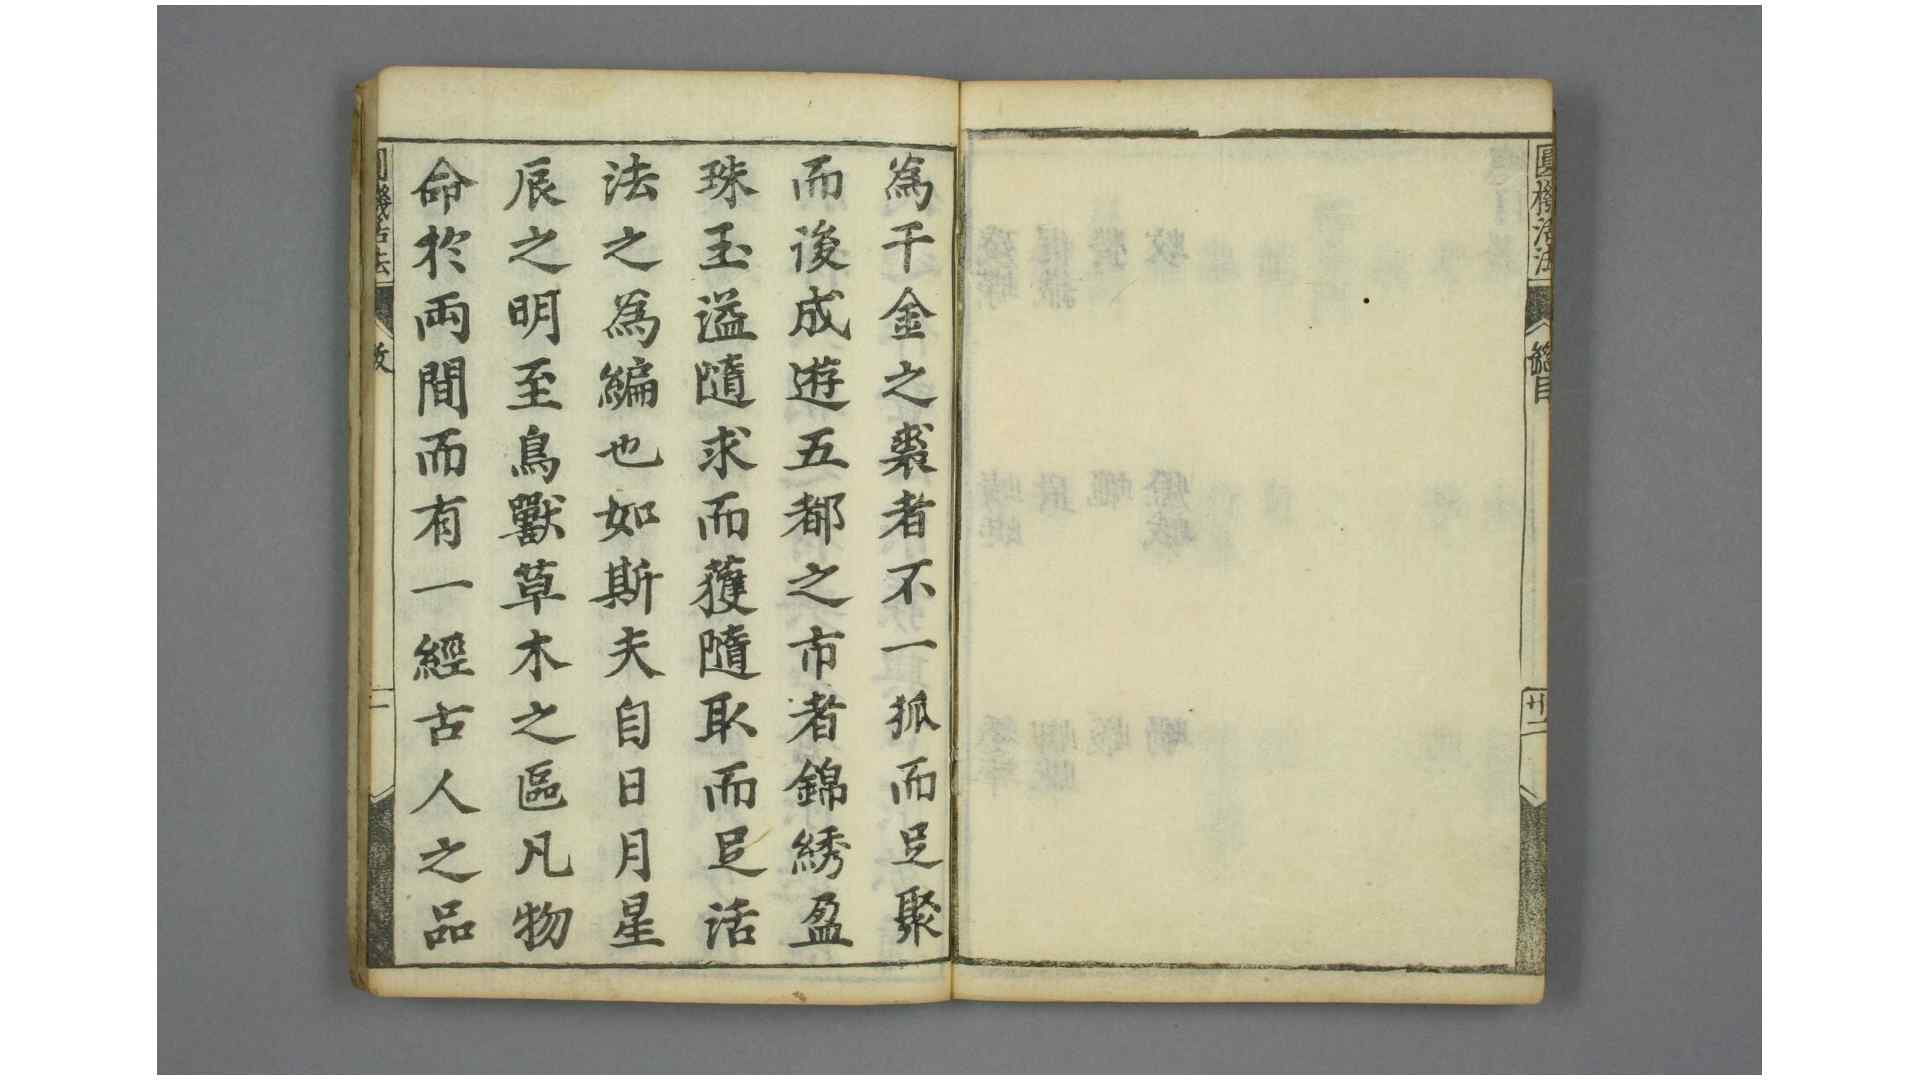 圓機活法
總目
廿二
為千金之裘者不一狐而足聚
而後成遊五都之市者錦綉盈
珠玉溢隨求而獲隨取而足活
法之為編也如斯夫自日月星
辰之明至鳥獸草木之區凡物
命於両間而有一經古人之品
機活法
敘
一